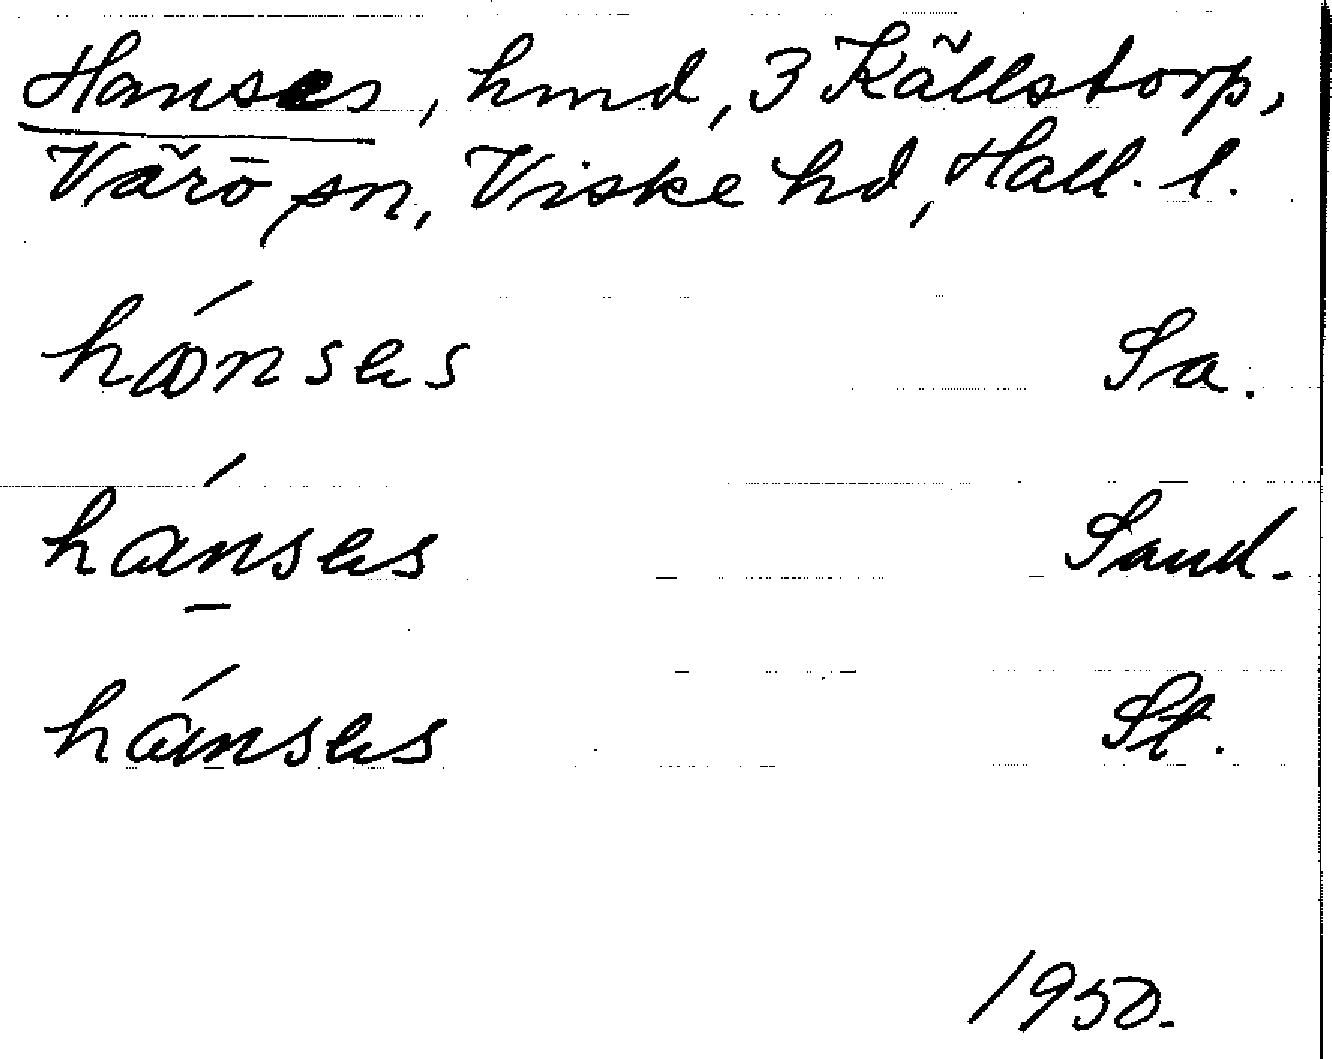 Hanses, hmd, 3 Källstorp,
Värö sn, Viske hd, Hall. l.
hánses Sa.
hánses Sand.
hánses St.
1950.